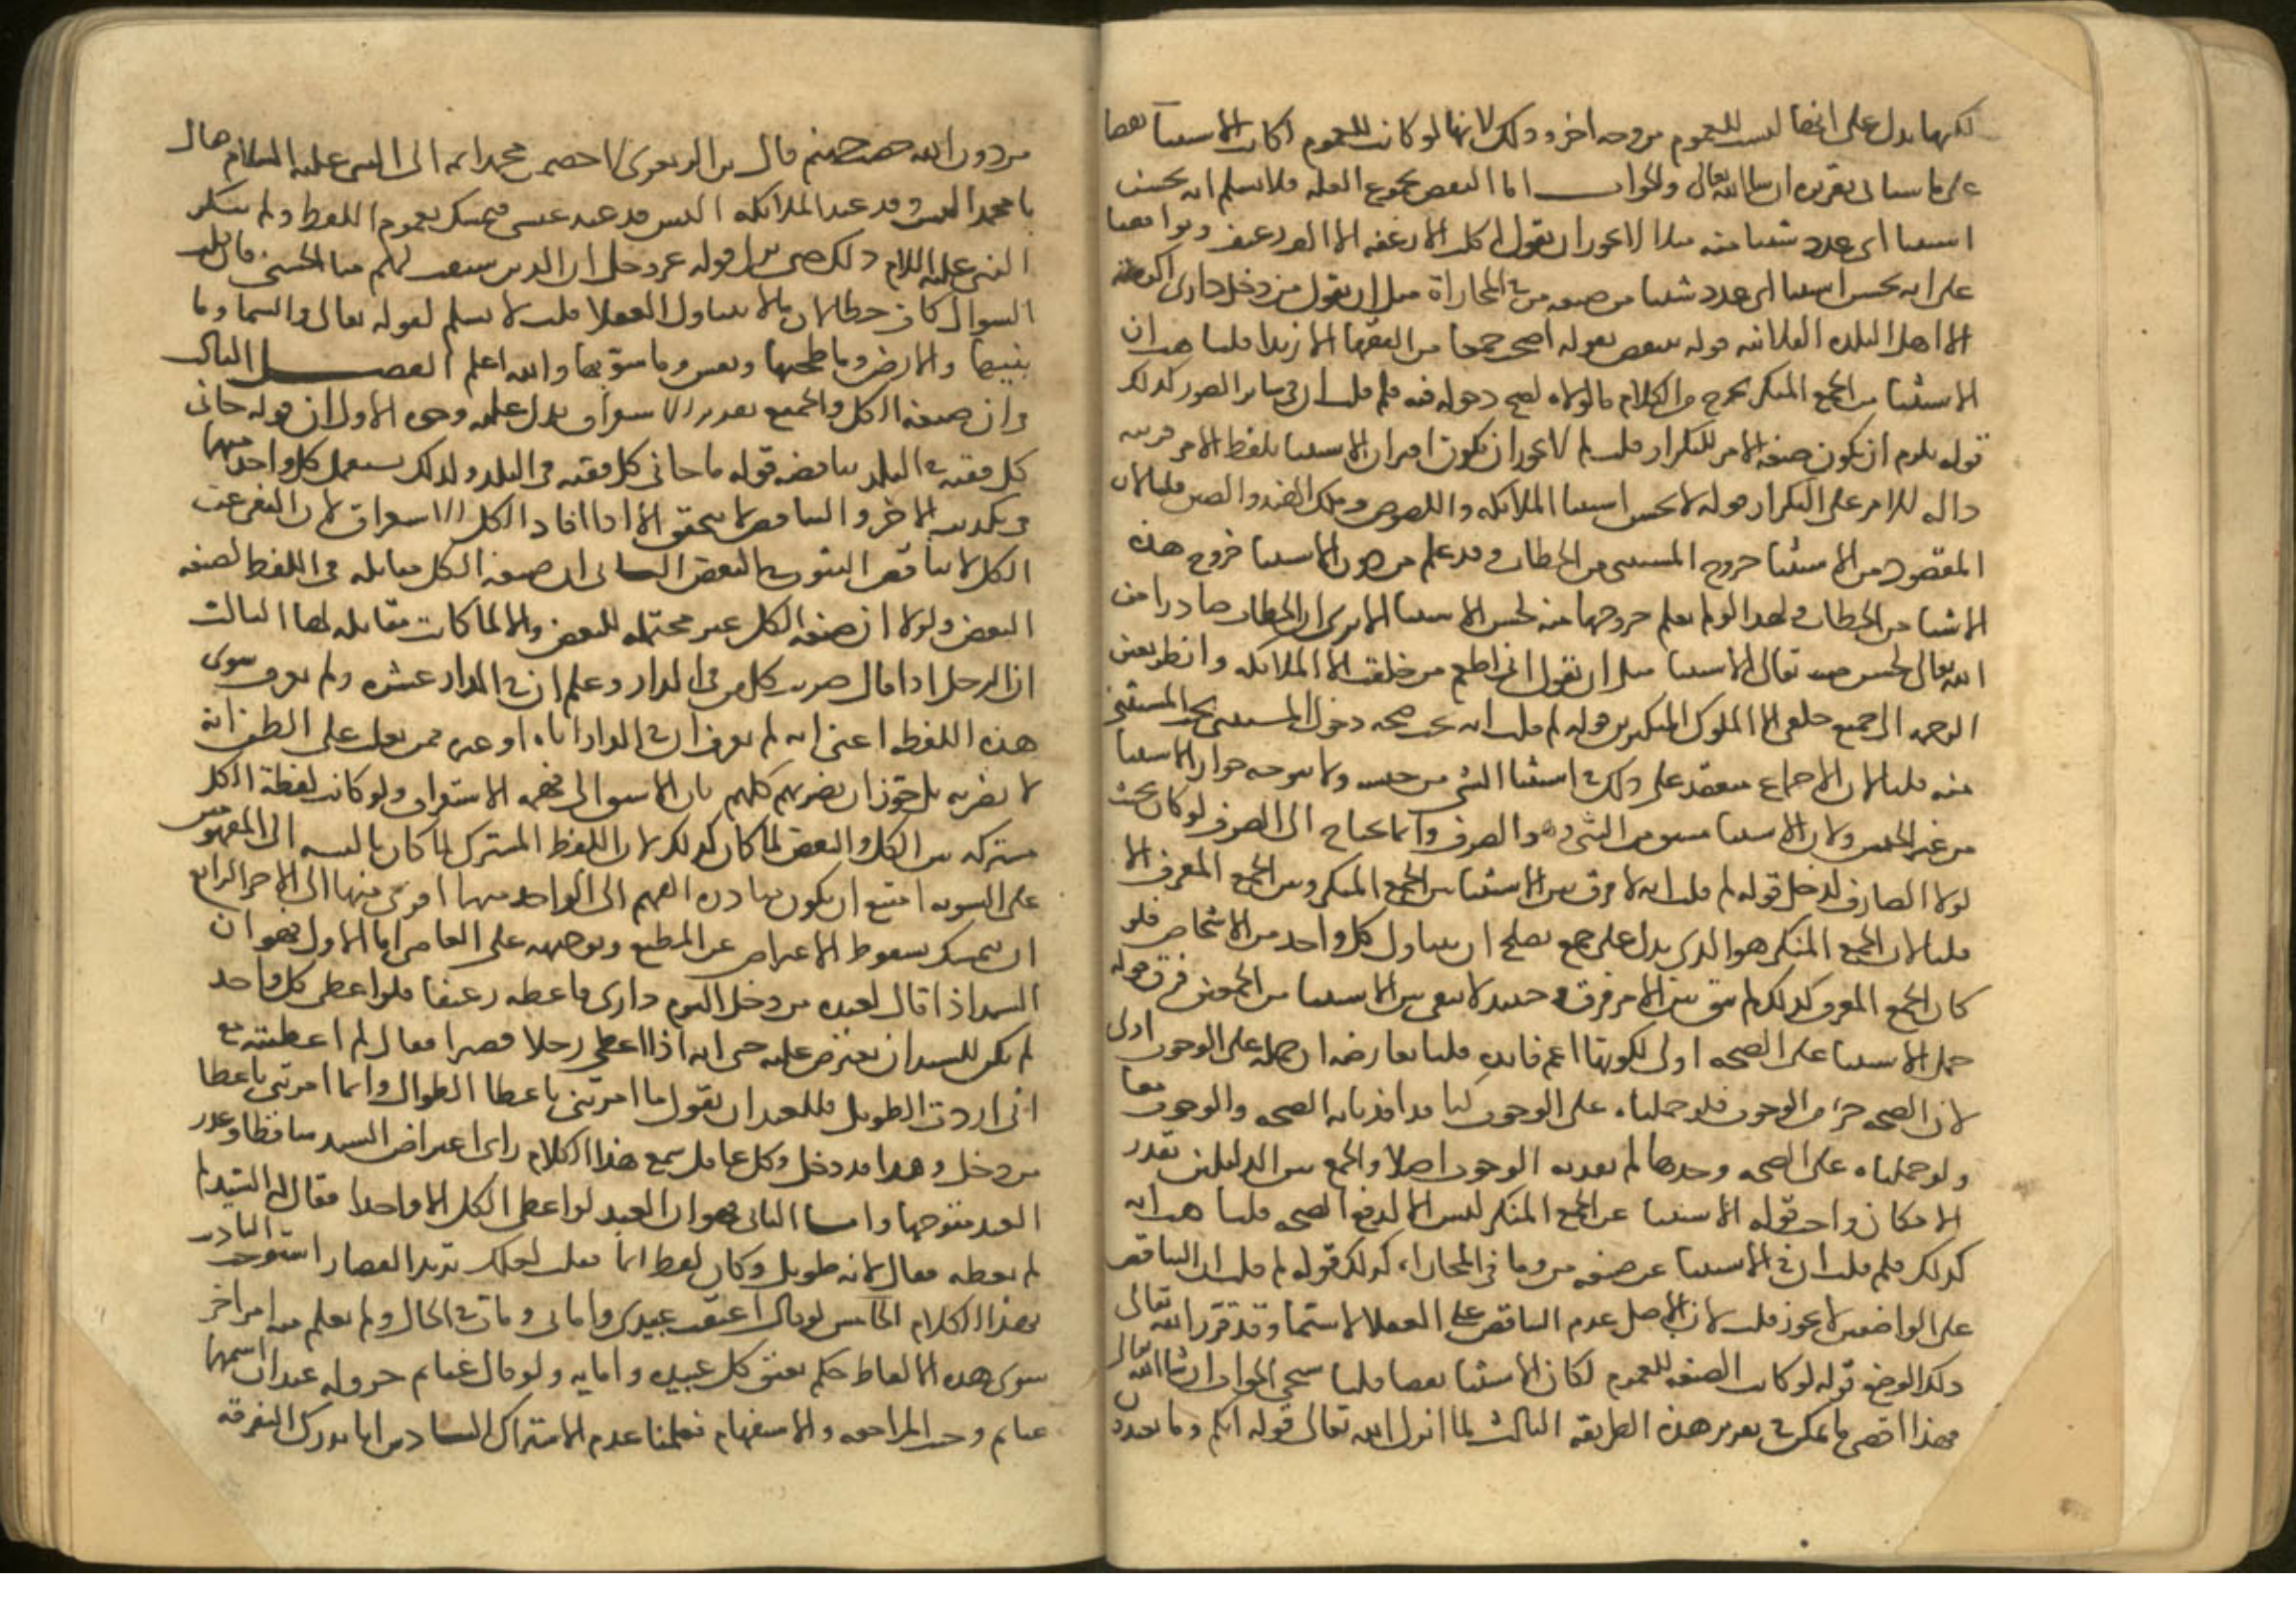 لكنها يدل على انها ليست للعموم من وجه اخر وذلك لانها لو كانت للعموم لكان الاستثناء نقضا
على ما سياتي تقريره ان شا الله تعالى والجواب اما النقض بجموع القلة فلا نسلم انه يحسن
استثنا اي عدد شينا منه مثلا لا يجوز ان تقول اكلت الارغفة الا الف رغيف وتوافقنا
على انه يحسن استثنا اي عدد شينا من صيغة من في المجازاة مثل ان تقول من دخل داري اكرمته
الا اهل البلدة الفلانية قوله ينتقض بقوله اصحب جمعا من الفقها الا زيدا قلنا هب ان
الاستثنا من الجمع المنكر يخرج من الكلام ما لولاه لصح دخوله فيه فلم قلت ان في ساير الصور كذلك
قوله يلزم ان يكون صيغة الامر للتكرار قلت لم لا يجوز ان يكون اقتران الاستثنا بلفظ الامر قرينة
دالة للامر على التكرار قوله لا يحسن استثنا الملائكة واللصوص وملك الهند والصين قلنا لان
المقصود من الاستثنا خروج المستثنى من الخطاب وقد علم من دون الاستثنا خروج هذه
الاشيا من الخطاب ولهذا لو لم يعلم خروجها منه لحسن الاستثنا الا ترى ان الخطاب صادرا من
الله تعالى لحسن منه تعالى الاستثنا مثل ان تقول اني اطعم من خلقت الا الملائكة وانظر بعين
الرحمة الى جميع خلقي الا الملوك المتكبرين قوله لم قلت انه يجب صحة دخول المستثنى تحت المستثنى
منه قلنا لان الاجماع منعقد على ذلك في استثنا الشي من جنسه ولا يتوجه جواز الاستثنا
من غير الجنس ولان الاستثنا مشتق من الثني وهو الصرف وانما يحتاج الى الصرف لو كان بحيث
لولا الصارف لدخل قوله لم قلت انه لا فرق بين الاستثنا من الجمع المنكر وبين الجمع المعرف الا
قلنا لان الجمع المنكر هو الذي يدل على جمع يصلح ان يتناول كل واحد من الاشخاص فلو
كان الجمع المعرف كذلك لم يبق بين الامر فرق وحينئذ لا يبقى بين الاستثنا من الجمعين فرق قوله
حمل الاستثنا على الصحة اولى لكونها اعم فايدة قلنا يعارضه ان حمله على الوجوب اولى
لان الصحة جزء من الوجوب فلو حملناه على الوجوب كنا قد افدنا به الصحة والوجوب معا
ولو حملناه على الصحة وحدها لم نفد به الوجوب اصلا والجمع بين الدليلين بقدر
الامكان واجب قوله الاستثنا عن الجمع المنكر ليس الا لدفع الصحة قلنا هب انه
كذلك فلم قلت ان في الاستثنا عن صيغة من وما في المجازاة كذلك قوله لم قلت ان التناقض
على الواضعين لا يجوز قلت لان الاصل عدم التناقض على العقلا لا سيما وقد قرر الله تعالى
ذلك الوضع قوله لو كانت الصيغة للعموم لكان الاستثنا نقضا قلنا سيجي الجواب ان شا الله تعالى
فهذا اقصى ما يمكن في تقرير هذه الطريقة الثالث لما انزل الله تعالى قوله انكم وما تعبدون
من دون الله حصب جهنم قال ابن الزبعرى لاخصمن محمدا ثم اتى النبي عليه السلام فقال
يا محمد اليس قد عبد الملائكة اليس قد عبد عيسى فتمسك بعموم اللفظ ولم ينكر
النبي عليه السلام ذلك حتى نزل قوله عز وجل ان الذين سبقت لهم منا الحسنى فان قلت
السوال كان خطا لان ما لا يتناول العقلا قلت لا نسلم لقوله تعالى والسما وما
بنيها والارض وما طحيها ونفس وما سويها والله اعلم الفصل الثالث
في ان صيغة الكل والجميع تفيد الاستغراق يدل عليه وجوه الاول ان قوله جاني
كل فقيه في البلد يناقضه قوله ما جاني كل فقيه في البلد ولذلك يستعمل كل واحد منهما
في تكذيب الاخر والتناقض لا يتحقق الا اذا افاد الكل الاستغراق لان النفي عن
الكل لا يناقض الثبوت في البعض الثاني ان صيغة الكل مقابلة في اللفظ لصيغة
البعض ولولا ان صيغة الكل غير محتملة للبعض والا لما كانت مقابلة لها الثالث
ان الرجل اذا قال ضربت كل من في الدار وعلم ان في الدار عشرة ولم يعرف سوى
هذه اللفظة اعني انه لم يعرف ان في الدار اباه او غيره ممن يغلب على الظن انه
لا يضربه بل جوز ان يضربهم كلهم فان الاسبق الى فهمه الاستغراق ولو كانت لفظة الكل
مشتركة بين الكل والبعض لما كان كذلك لان اللفظ المشترك لما كان بالنسبة الى المفهومين
على السوية امتنع ان يكون مبادرة الفهم الى الواحد منهما اقوى منها الى الاخر الرابع
ان نتمسك بسقوط الاعتراض عن المطيع وتوجهه على العاصي اما الاول فهو ان
السيد اذا قال لعبده من دخل اليوم داري فاعطه رغيفا فلو اعطى كل واحد
لم يكن للسيد ان يعترض عليه حتى انه اذا اعطى رجلا قصيرا فقال لم اعطيته مع
اني اردت الطويل فللعبد ان يقول ما امرتني باعطا الطوال وانما امرتني باعطا
من دخل وهذا قد دخل وكل عاقل سمع هذا الكلام راى اعتراض السيد ساقطا وعذر
العبد متوجها واما الثاني فهو ان العبد لو اعطى الكل الا واحدا فقال له السيد لم
لم تعطه فقال لانه طويل وكان لفظ انما فقلت لعلك تريد القصار استوجب التاديب
بهذا الكلام الخامس لو قال اعتقت عبيدي واماني ومات في الحال ولم يعلم منه امر اخر
سوى هذه الالفاظ حكم بعتق كل عبيده وامايه ولو قال غانم حر وله عبدان اسمهما
غانم وجب المراجعة والاستفهام فعلمنا عدم الاشتراك السادس انا ندرك التفرقة